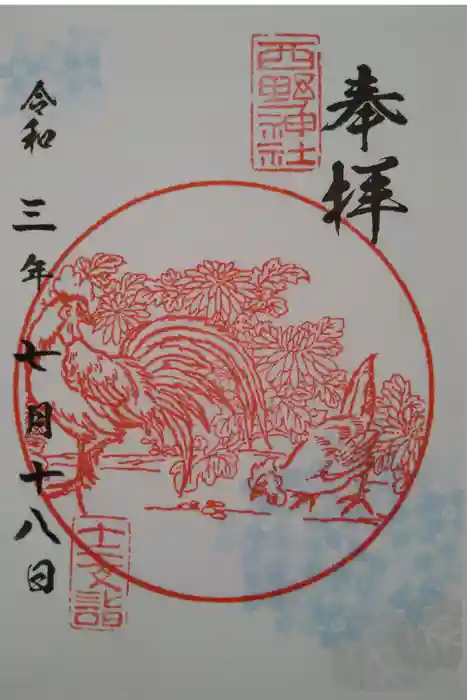 奉拝
西野神社
令和三年七月十八日
十二支詣